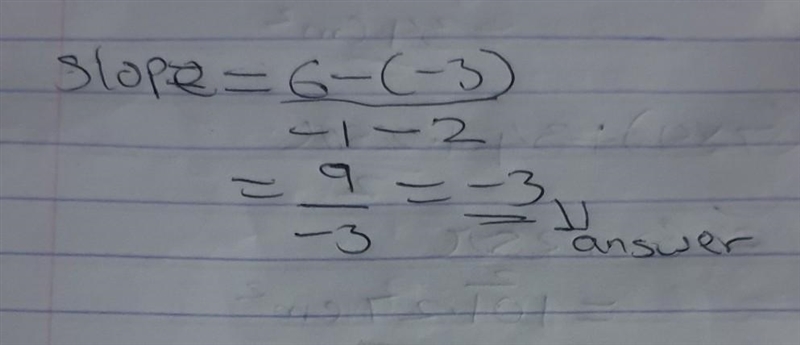 slope = 6-(-3)
-1-2
= 9 = -3
-3 answer